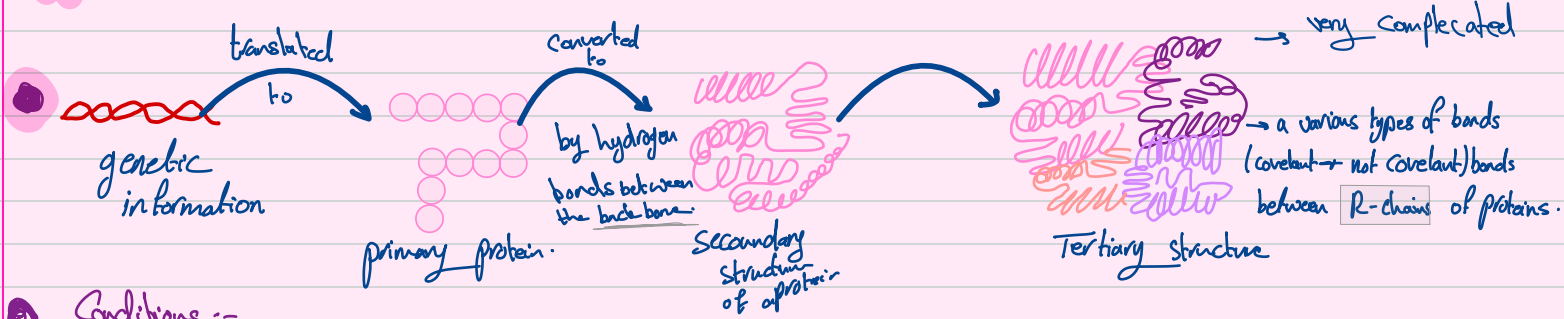 translated
to
genetic
information
primary protein.
converted
to
by hydrogen
bonds between
the backbone.
Secoundary
structure
of aprotein
Tertiary structure
→ very complecated
→ a various types of bonds
(covelant + not covelant) bonds
between R-chains of proteins.
Conditions :-